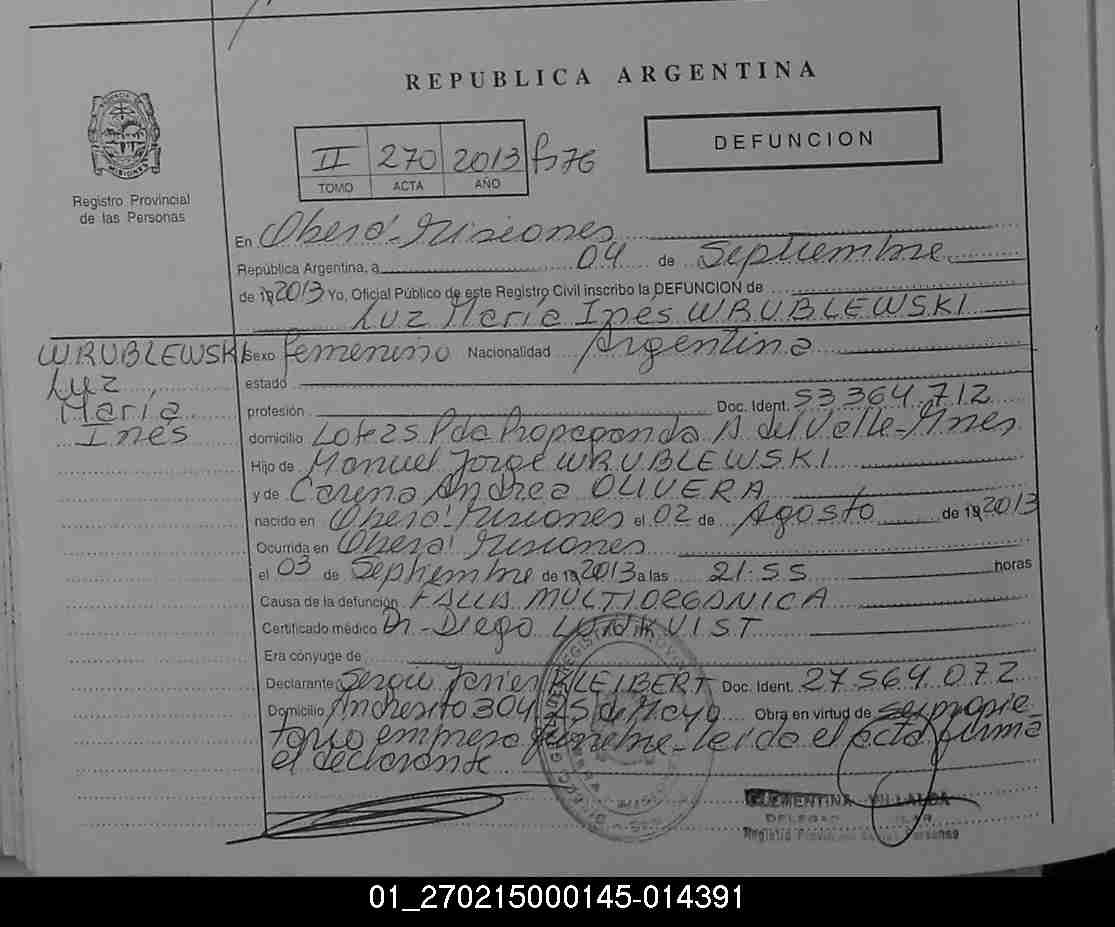 REPUBLICA ARGENTINA
Registro Provincial
de las Personas
II 270 2013 fº 76
TOMO ACTA AÑO
DEFUNCION
En Oberá - Misiones
República Argentina, a 04 de Septiembre
de 19 2013 Yo, Oficial Público de este Registro Civil inscribo la DEFUNCION de
Luz María Inés WRUBLEWSKI
WRUBLEWSKI
Luz
María
Inés
Sexo femenino Nacionalidad Argentina
estado
profesión Doc. Ident. 53 364 712
domicilio Lote 25 Pda Propaganda A del Valle - Mnes
Hijo de Manuel Jorge WRUBLEWSKI
y de Carina Andrea OLIVERA
nacido en Oberá Misiones el 02 de Agosto de 19 2013
Ocurrida en Oberá Misiones
el 03 de Septiembre de 19 2013 a las 21:55 horas
Causa de la defunción FALLA MULTIORGANICA
Certificado médico Dr. Diego LUNDKVIST
Era cónyuge de
Declarante Javier KLEIBERT Doc. Ident. 27 564 072
Domicilio Andresito 304 25 de Mayo Obra en virtud de ser propie
tario empresa fúnebre - leída el acta firma
el declarante
CLEMENTINA VILLALBA
Registro Provincial de las Personas
01_270215000145-014391